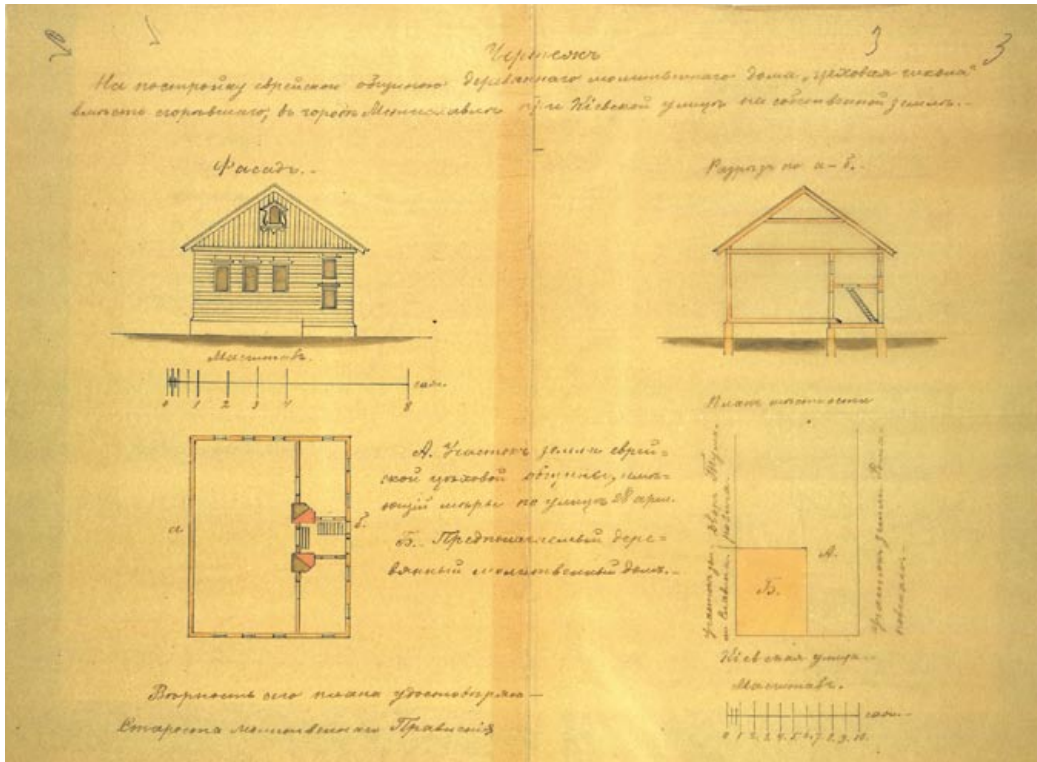 3 3
Чертежъ
На постройку еврейскою общиною деревяннаго молитвеннаго дома „цеховая школа“
вместо сгоревшаго, въ городе Мстиславле при Кіевской улице на собственной земле.
Фасадъ.
Разрезъ по а–б.
Масштабъ.
0 1 2 3 4 8 саж.
Планъ местности
а
б.
А. Участокъ земли еврей=
ской цеховой общины, име=
ющій меры по улице 28 арш.
Б. Предполагаемый дере=
вянный молитвенный домъ.
А.
Б.
Участокъ земли
Кіевская улица
Масштабъ.
0 1 2 3 4 5 6 7 8 9 10 саж.
Верность сего плана удостоверяю
Староста молитвеннаго Правленія